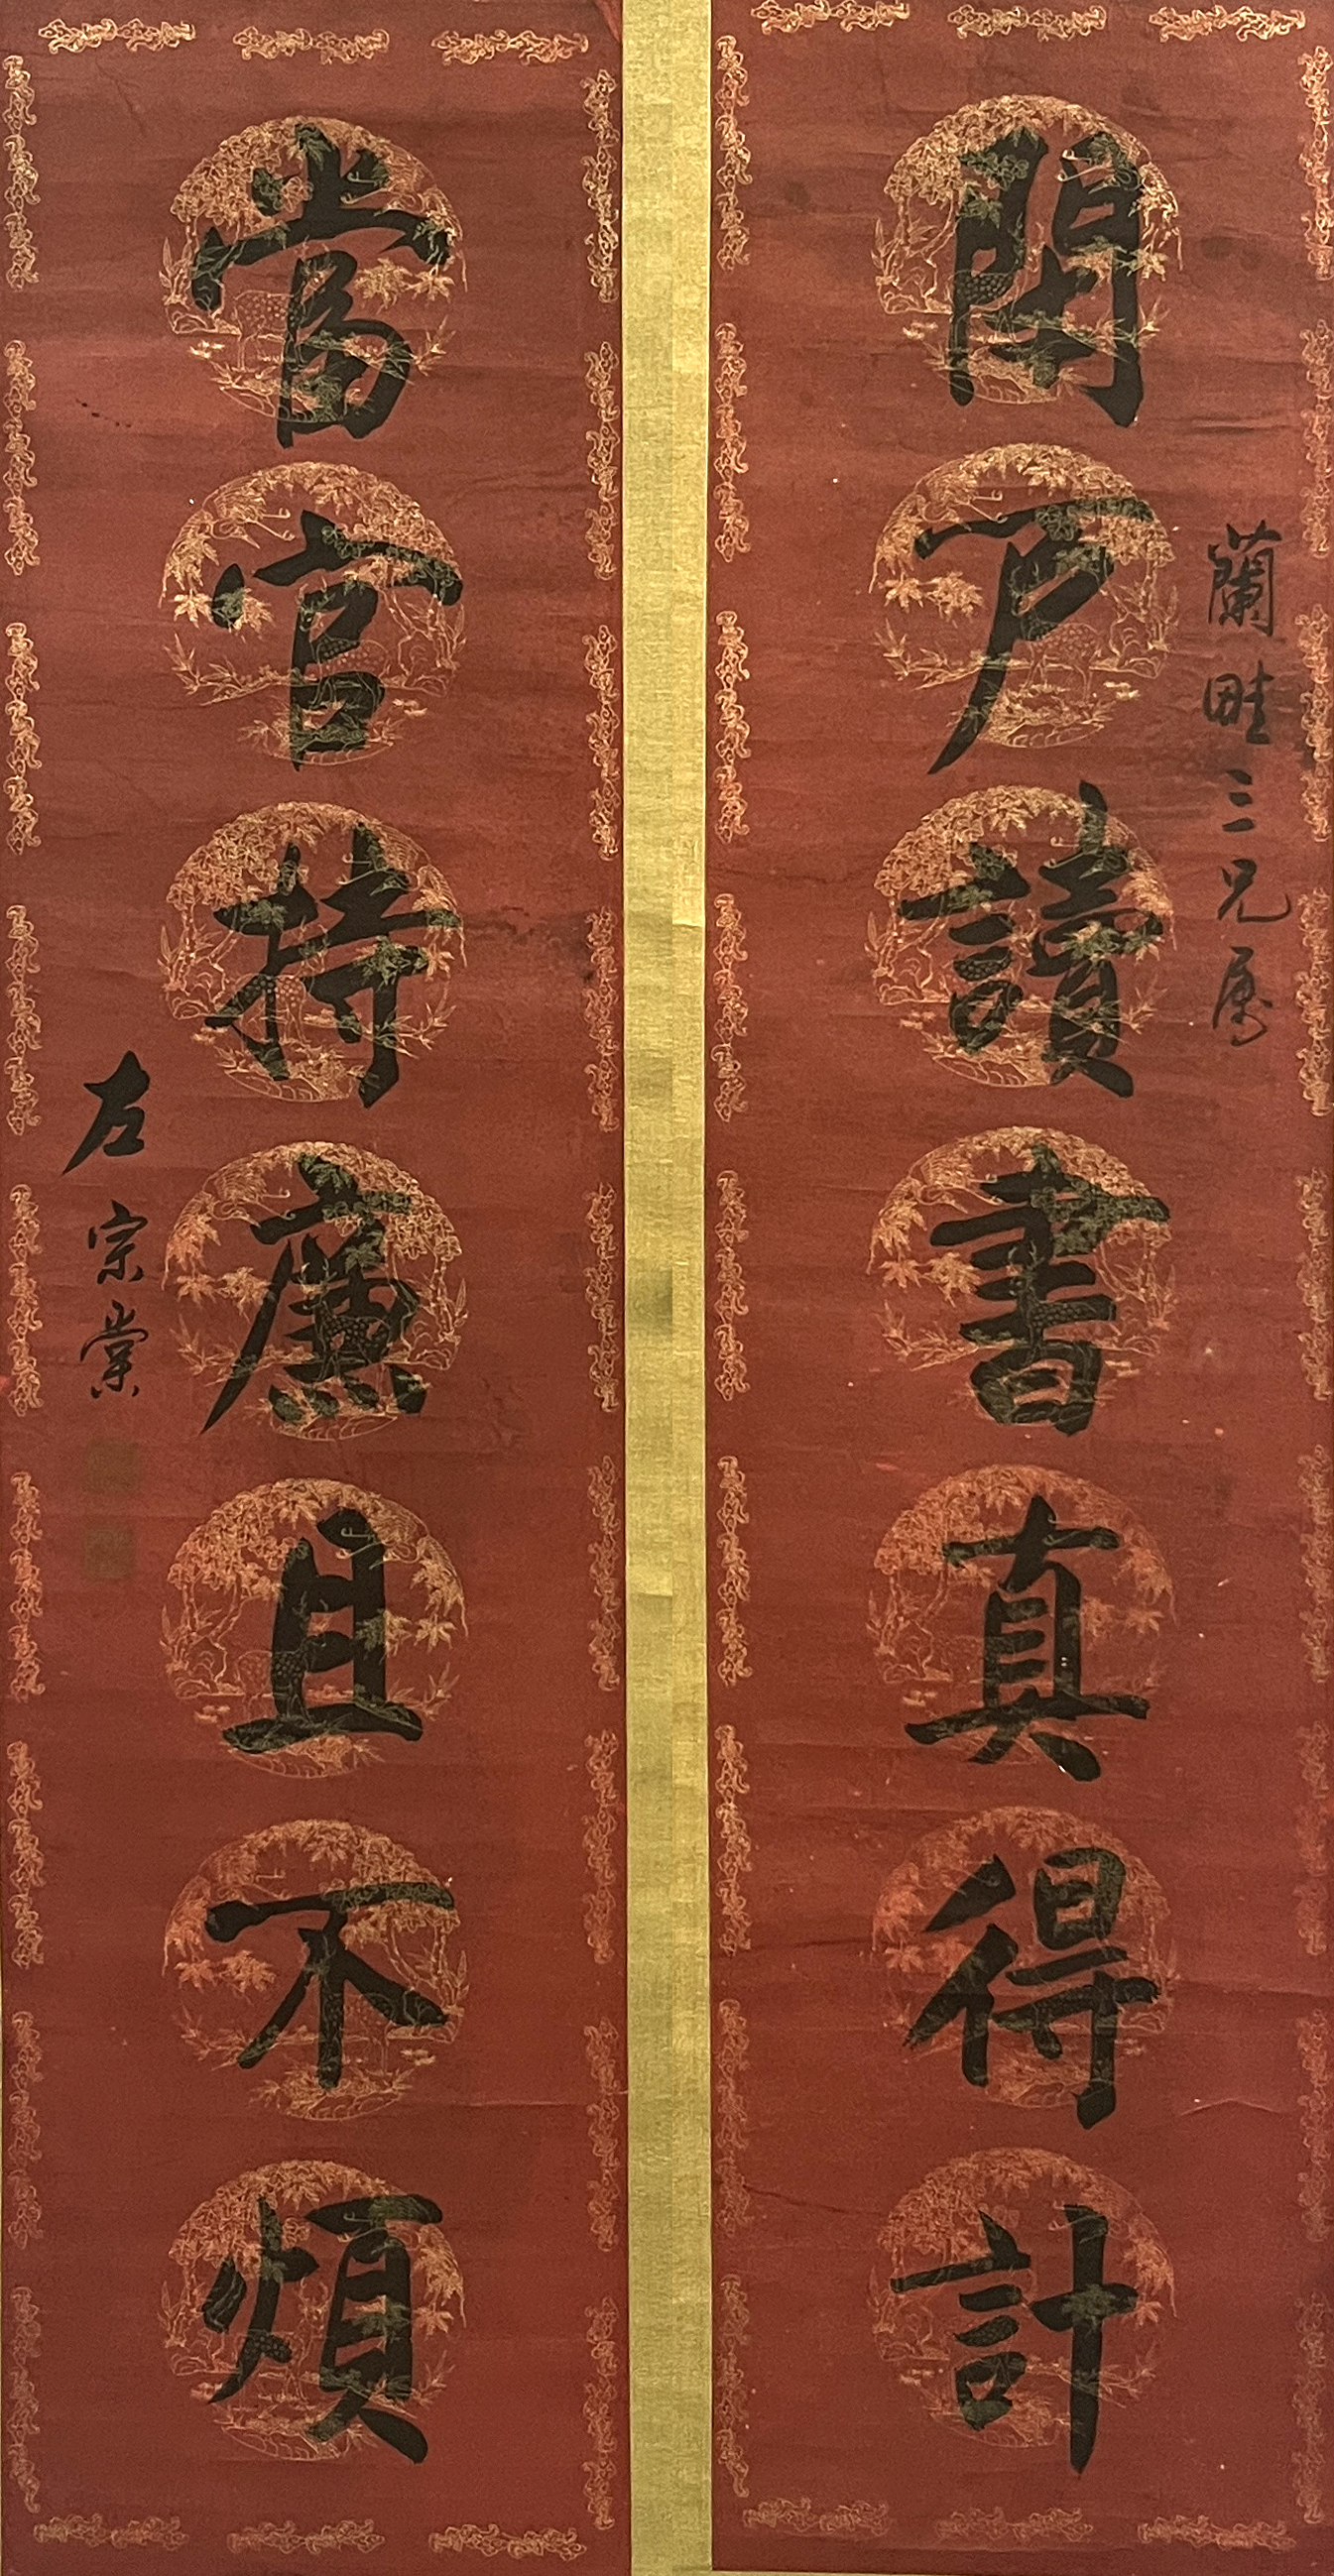 蘭畦三兄属
閉户讀書真得計
當官持廉且不煩
左宗棠